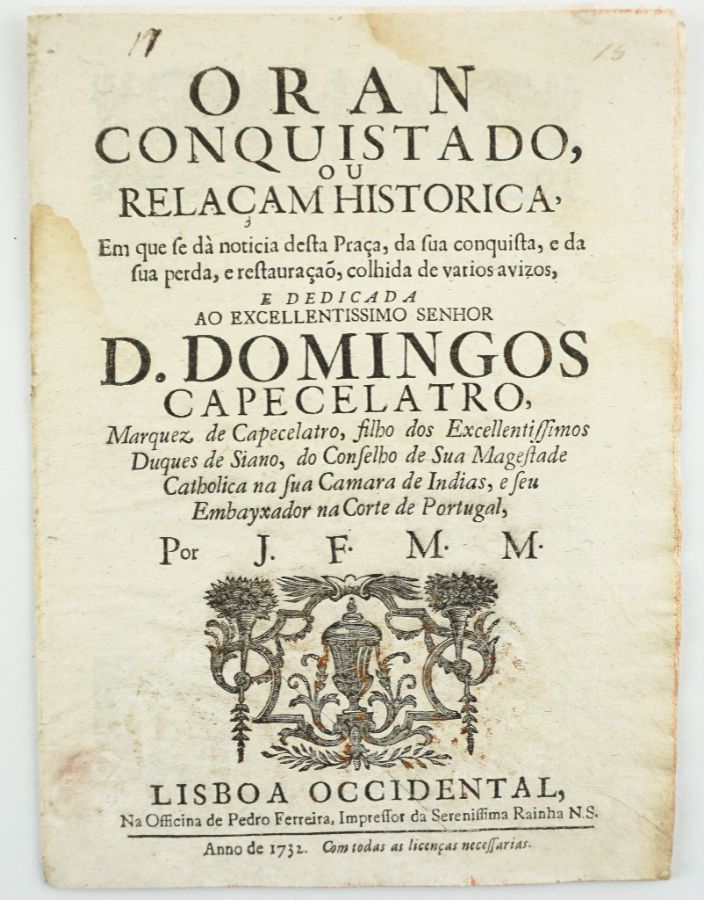 17
15
ORAN
CONQUISTADO,
OU
RELAÇAM HISTORICA,
Em que ſe dà noticia deſta Praça, da ſua conquiſta, e da
ſua perda, e reſtauraçaõ, colhida de varios avizos,
E DEDICADA
AO EXCELLENTISSIMO SENHOR
D. DOMINGOS
CAPECELATRO,
Marquez de Capecelatro, filho dos Excellentiſſimos
Duques de Siano, do Conſelho de Sua Mageſtade
Catholica na ſua Camara de Indias, e ſeu
Embayxador na Corte de Portugal,
Por J. F. M. M.
LISBOA OCCIDENTAL,
Na Officina de Pedro Ferreira, Impreſſor da Sereniſſima Rainha N.S.
Anno de 1732. Com todas as licenças neceſſarias.